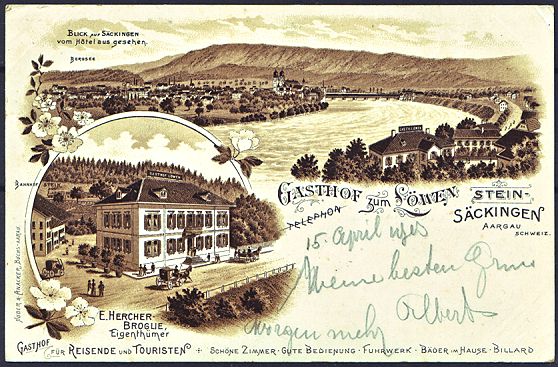 BLICK AUF SÄCKINGEN
VOM HÔTEL AUS GESEHEN.
BERGSEE
GASTH. LÖWEN
BAHNHOF STEIN
GASTHOF LÖWEN
GASTHOF ZUM LÖWEN
STEIN-
SÄCKINGEN
AARGAU
SCHWEIZ.
TELEPHON
15. April
Meine besten Grüsse
Albert
Morgen mehr
E. HERCHER-
BROGLIE,
Eigenthümer
GASTHOF FÜR REISENDE UND TOURISTEN + SCHÖNE ZIMMER · GUTE BEDIENUNG · FUHRWERK · BÄDER IM HAUSE · BILLARD